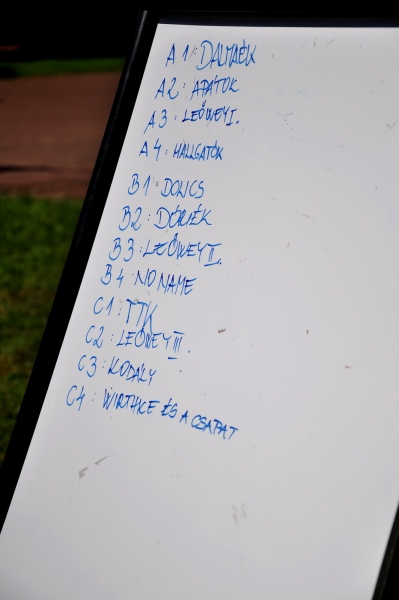 A1: DALMAÉK
A2: APÁTOK
A3: LEŐWEY I.
A4: HALLGATÓK
B1: DONCS
B2: DÓRIÉK
B3: LEŐWEY II.
B4: NO NAME
C1: TTK
C2: LEŐWEY III.
C3: KODÁLY
C4: WIRTHKE ÉS A CSAPAT